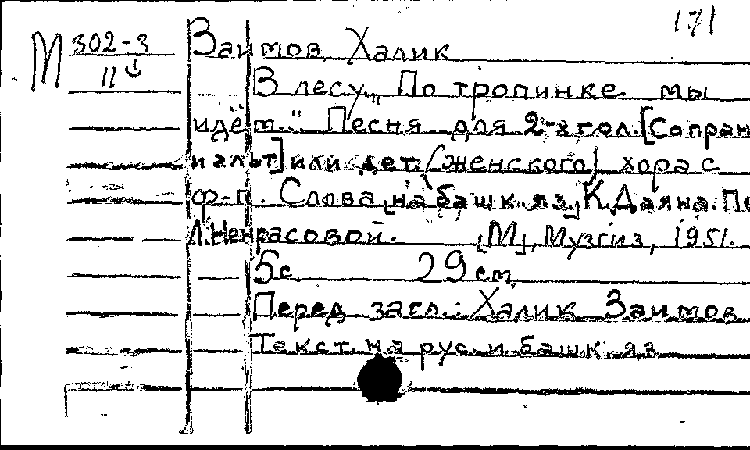 171
М 302-3 Заимов, Халик
В лесу. „По тропинке мы
идём." Песня для 2-х гол. [сопран
и альт] или дет. (женского) хора с
ф-п. Слова [на башк. яз.] К. Даяна. Пе
Л. Некрасовой. [М], Музгиз, 1951.
5с 29 см.
Перед загл.: Халик Заимов
Текст на рус. и башк. яз